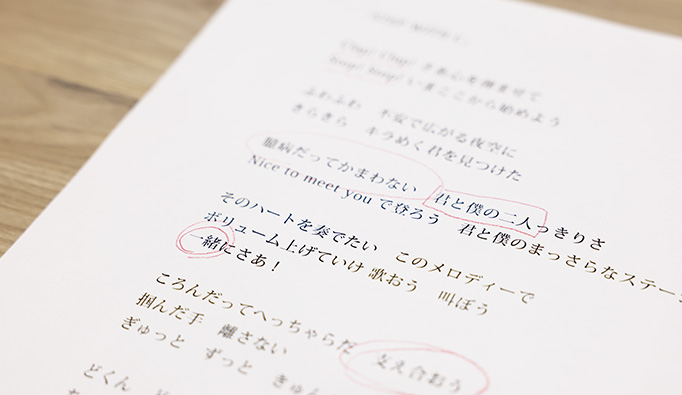 さあ心を弾ませて
いまここから始めよう
ふわふわ　不安で広がる夜空に
きらきら　キラめく君を見つけた
臆病だってかまわない　君と僕の二人っきりさ
Nice to meet you で登ろう　君と僕のまっさらなステー
そのハートを奏でたい　このメロディーで
ボリューム上げていけ 歌おう　叫ぼう
一緒にさあ！
ころんだってへっちゃらだ　支え合おう
掴んだ手　離さない
ぎゅっと　ずっと　きゅん
どくん